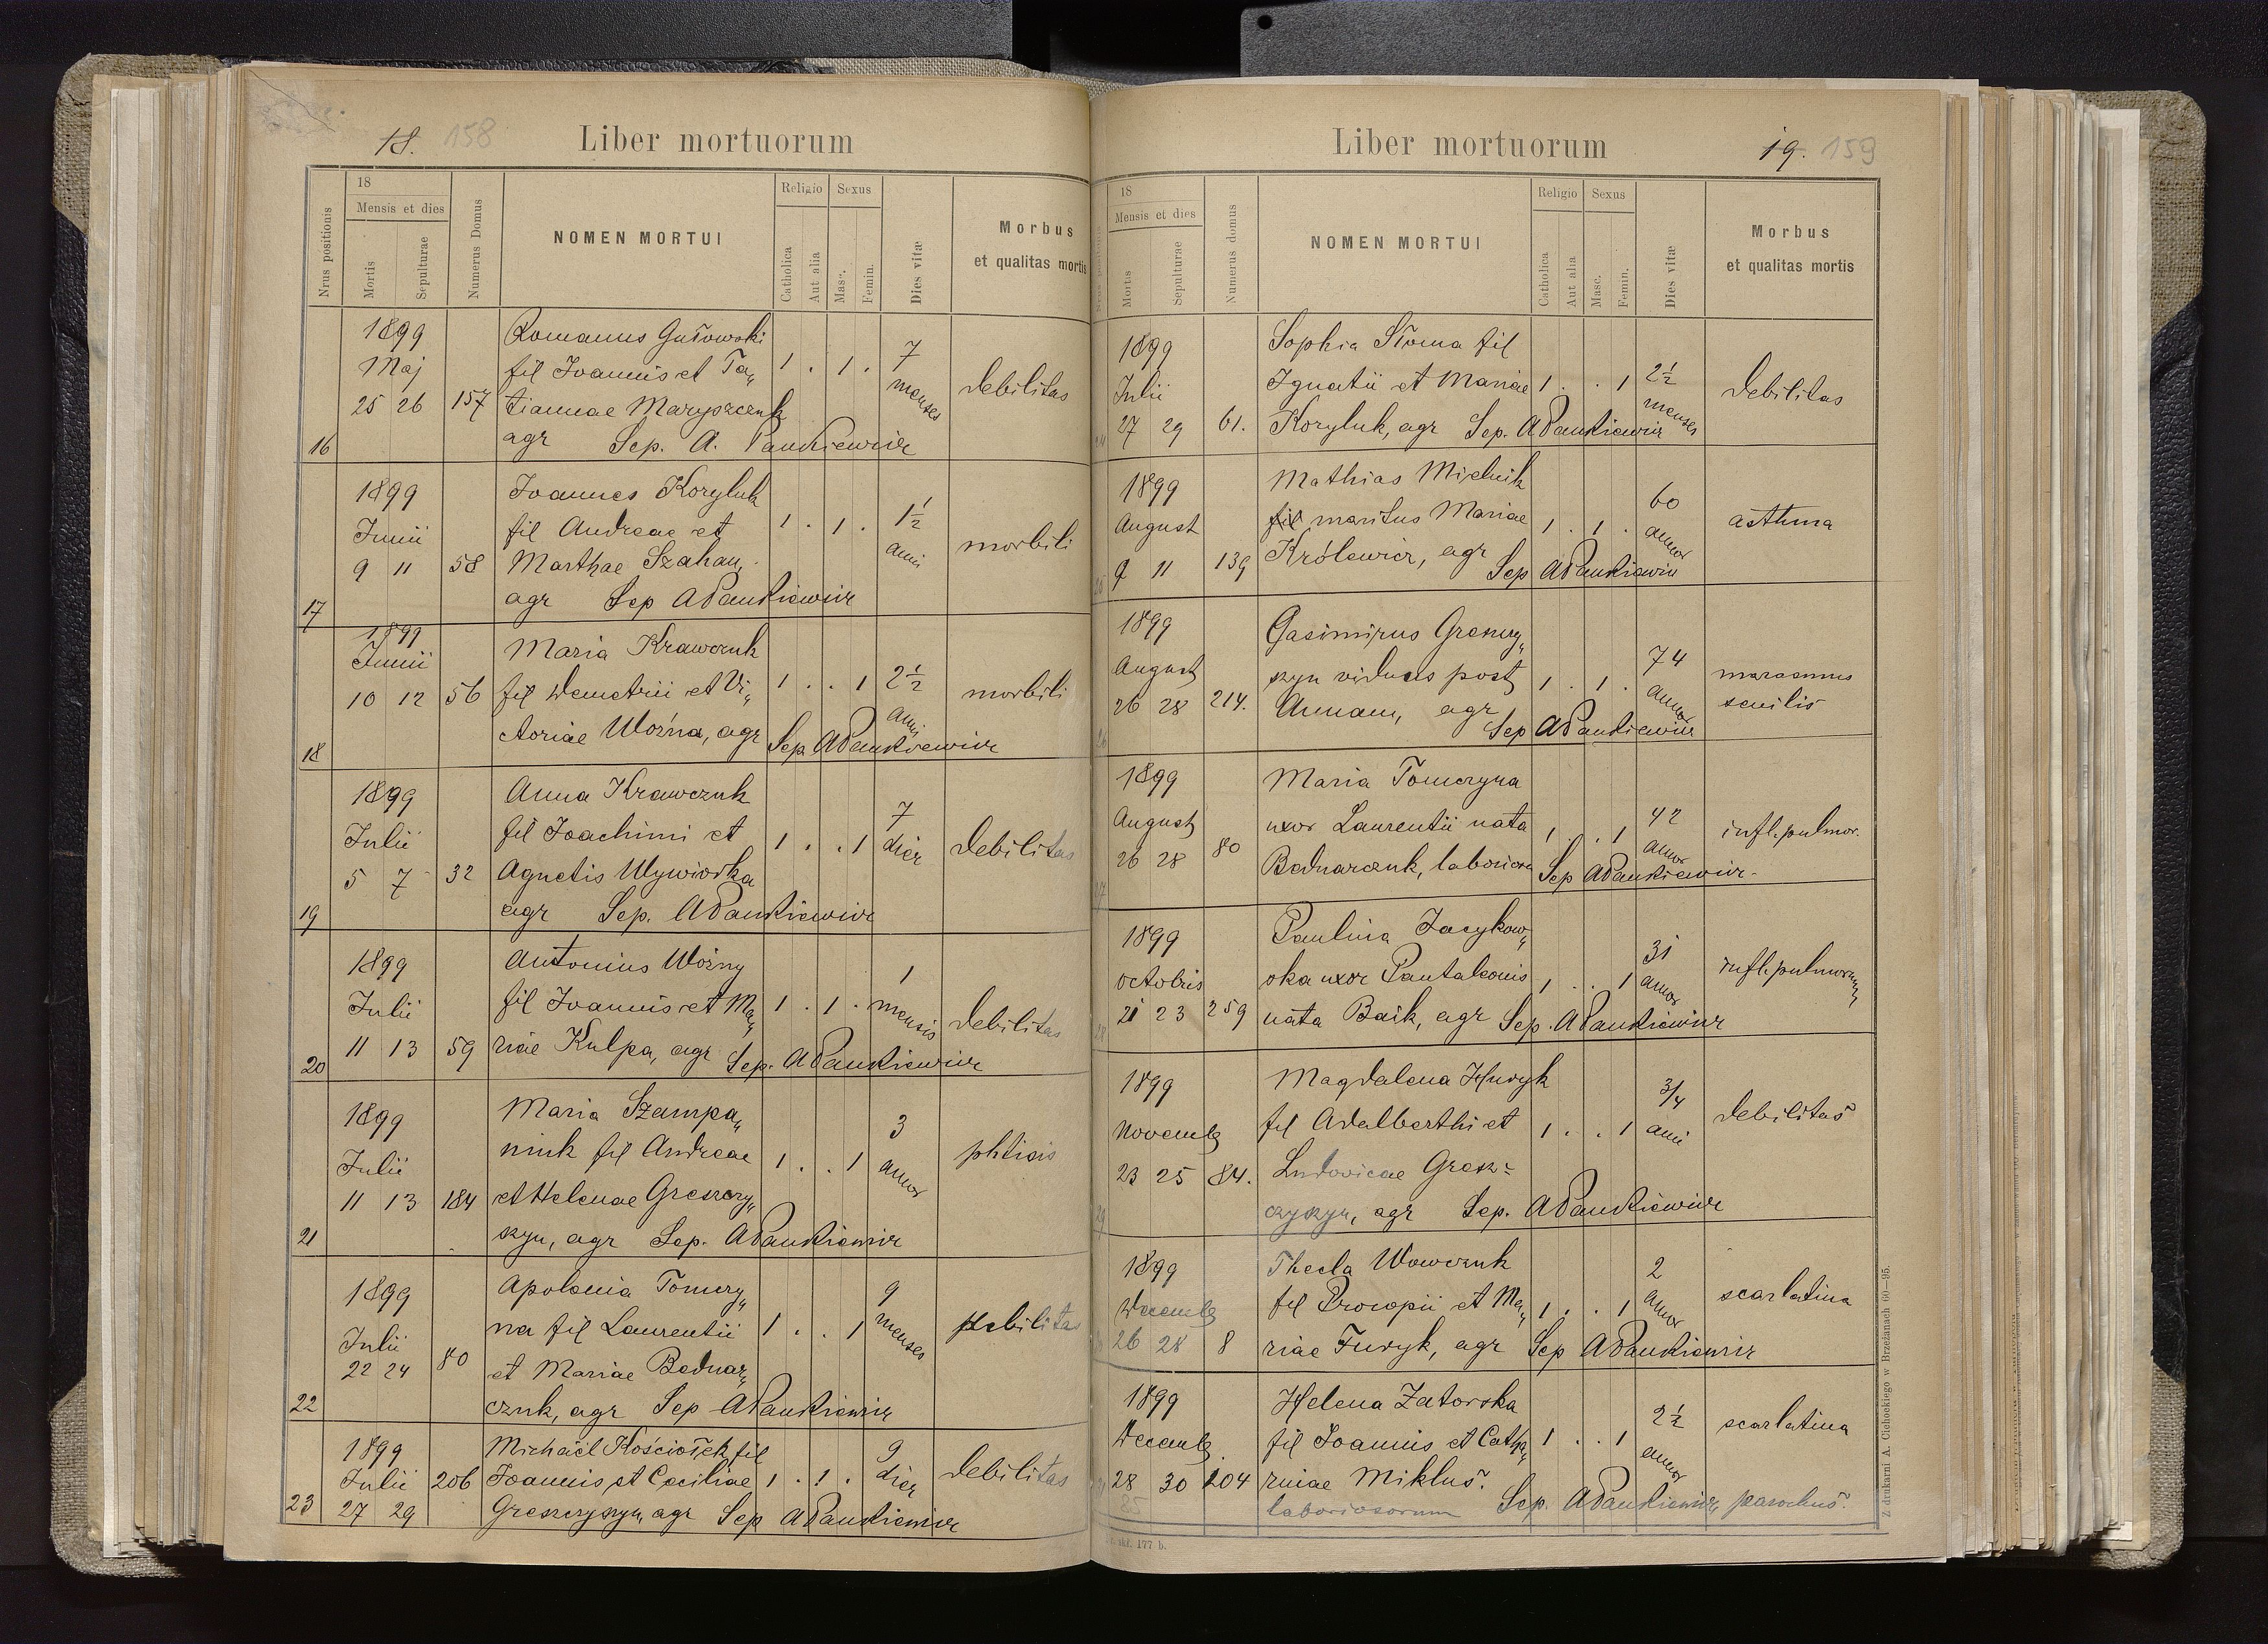 18. 158
Liber mortuorum
Nrus positionis
18
Mensis et dies
Mortis
Sepulturae
Numerus Domus
NOMEN MORTUI
Religio
Catholica
Aut alia
Sexus
Masc.
Femin.
Dies vitæ
Morbus
et qualitas mortis
1899 Romanus Gutowski 7
Maj fil Joannis et Ta„ 1 . 1 . menses debilitas
25 26 157 tiannae Maryszczuk
16 agr Sep. A. Pankiewicz
1899 Joannes Koryluk 1½
Junii fil Andreae et 1 . 1 . anni morbili
9 11 58 Marthae Szahan,
17 agr Sep APankiewicz
1899 Maria Krawczuk
Junii fil Demetrii et Vi„ 1 . . 1 2½ morbili
10 12 56 ctoriae Woźna, agr anni
18 Sep. APankiewicz
1899 Anna Krawczuk 7
Julii fil Joachimi et 1 . . 1 dies debilitas
5 7 32 Agnetis Wywiorka
19 agr Sep. APankiewicz
1899 Antonius Woźny 1
Julii fil Joannis et Ma„ 1 . 1 . mensis debilitas
11 13 59 riae Kulpa, agr
20 Sep. APankiewicz
1899 Maria Szampa„ 3
Julii niuk fil Andreae 1 . . 1 annor phtisis
11 13 184 et Helenae Greszczy„
21 szyn, agr Sep. APankiewicz
1899 Apolonia Tomczy„ 9
Julii na fil Laurentii 1 . . 1 menses debilitas
22 24 80 et Mariae Bednar„
22 czuk, agr Sep APankiewicz
1899 Michaël Kościołek fil 9
Julii 206 Joannis et Ceciliae 1 . 1 . dier debilitas
23 27 29 Greszczyszyn, agr Sep APankiewicz
Liber mortuorum
19. 159
18
Mensis et dies
Mortis
Sepulturae
Numerus domus
NOMEN MORTUI
Religio
Catholica
Aut alia
Sexus
Masc.
Femin.
Dies vitæ
Morbus
et qualitas mortis
1899 Sophia Słoma fil
Julii Ignatii et Mariae 1 . . 1 2½ menses debilitas
27 29 61. Koryluk, agr Sep. APankiewicz
1899 Mathias Mielnik 60
August fil maritus Mariae 1 . 1 . annor asthma
9 11 139 Królewicz, agr
Sep APankiewicz
1899 Casimirus Greszczy„ 74
August szyn viduus post 1 . 1 . annor marasmus
26 28 214. Annam, agr senilis
Sep APankiewicz
1899 Maria Tomczyna
August uxor Laurentii nata 1 . . 1 42 annor infl. pulmor.
26 28 80 Bednarczuk,
Sep APankiewicz
1899 Paulina Jacykow„ 31
octobris ska uxor Pantaleonis 1 . . 1 annor infl. pulmonum
21 23 259 nata Baik, agr Sep. APankiewicz
1899 Magdalena Huryk 3/4
Novemb fil Adalberthi et 1 . . 1 anni debilitas
23 25 84. Ludovicae Gresz-
czyszyn, agr Sep. APankiewicz
1899 Thecla Wowczuk 2
Decemb fil Procopii et Ma„ 1 . . 1 annor scarlatina
26 28 8 riae Furyk, agr Sep APankiewicz
1899 Helena Zatorska 2½ scarlatina
Decemb. fil Joannis et Catha„ 1 . . 1 annor
28 30 204 rinae Mikluś.
85 laboriosorum Sep. APankiewicz parochus.
177 b.
Z drukarni A. Cichockiego w Brzeżanach 60—95.